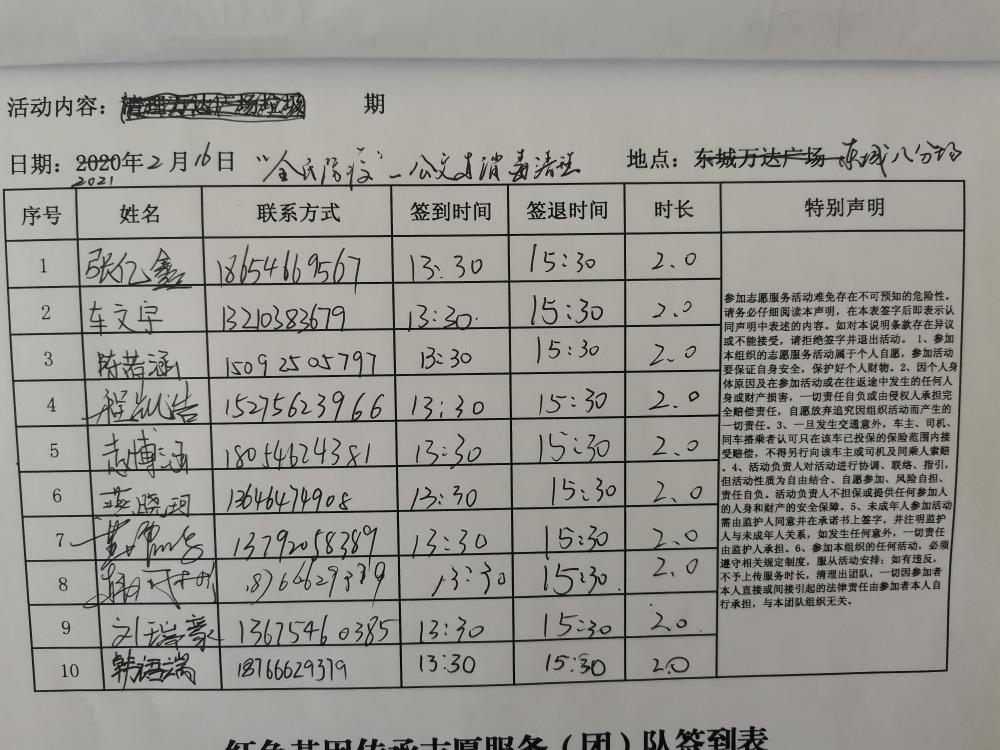 活动内容：清理万达广场垃圾 期
日期：2020年2月16日 "全民防疫"-公交车消毒清洁 地点：东城万达广场 东城八分场
2021
序号 姓名 联系方式 签到时间 签退时间 时长 特别声明
1 张亿鑫 18654669567 13:30 15:30 2.0
2 车文宇 13210383679 13:30 15:30 2.0
3 陈若涵 15092505797 13:30 15:30 2.0
4 程 浩 15275623966 13:30 15:30 2.0
5 博涵 18054624381 13:30 15:30 2.0
6 晓珂 13646474908 13:30 15:30 2.0
7 13792058389 13:30 15:30 2.0
8 18766629379 13:30 15:30 2.0
9 刘瑞豪 13675460385 13:30 15:30 2.0
10 韩语端 18766629379 13:30 15:30 2.0
参加志愿服务活动难免存在不可预知的危险性。
请务必仔细阅读本声明，在本表签字后即表示认
同声明中表述的内容。如对本说明条款存在异议
或不能接受，请拒绝签字并退出活动。 1、参加
本组织的志愿服务活动属于个人自愿，参加活动
要保证自身安全，保护好个人财物。2、因个人身
体原因及在参加活动或在往返途中发生的任何人
身或财产损害，一切责任自负或由侵权人承担完
全赔偿责任，自愿放弃追究因组织活动而产生的
一切责任。3、一旦发生交通意外，车主、司机、
同车搭乘者认可只在该车已投保的保险范围内接
受赔偿，不得另行向该车主或司机及同乘人索赔
。4、活动负责人对活动进行协调、联络、指引，
但活动性质为自由结合、自愿参加、风险自担、
责任自负。活动负责人不担保或提供任何参加人
的人身和财产的安全保障。5、未成年人参加活动
需由监护人同意并在承诺书上签字，并注明监护
人与未成年人关系，如发生任何意外，一切责任
由监护人承担。6、参加本组织的任何活动，必须
遵守相关规定制度，服从活动安排；如有违反，
不予上传服务时长，清理出团队，一切因参加者
本人直接或间接引起的法律责任由参加者本人自
行承担，与本团队组织无关。
红色基因传承志愿服务（团）队签到表